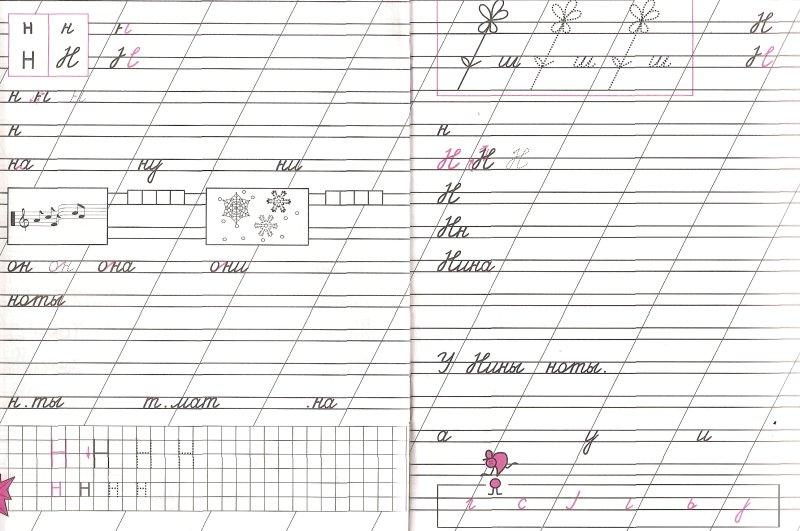 н н н
Н Н Н
н н н
н
на ну ни
он он она они
ноты
н.ты т.мат .на
Н Н Н Н
н н н н
ш ш ш
Н
Н
н
Н Н Н
Н
Нн
Нина
У Нины ноты.
а у и